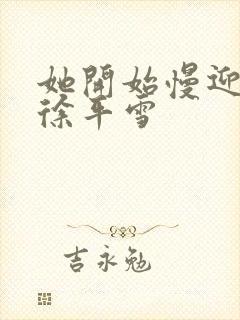 她開始慢迎
徐平雪
吉永勉